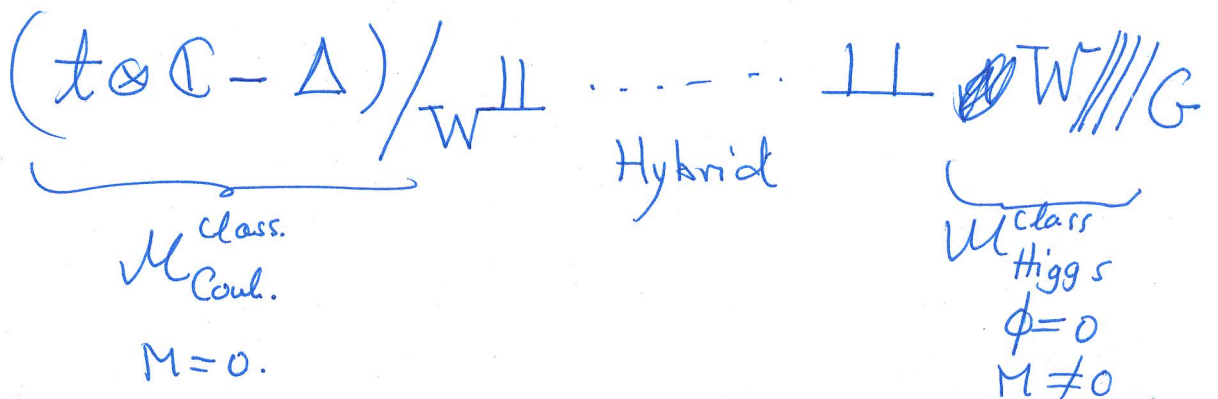 (t ⊗ ℂ − Δ)/W ⊔ ..... ⊔ W////G
Hybrid
M Class. Coul. M Class Higgs
ϕ=0
M=0. M≠0